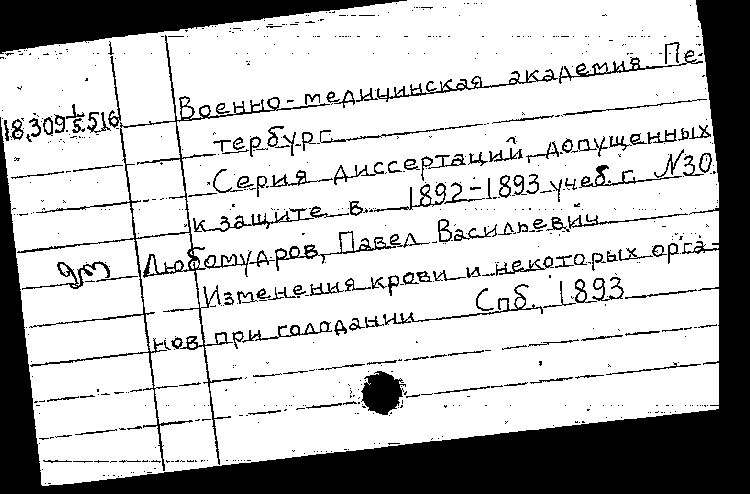 Военно-медицинская академия Пе-
18,309 1/5.516
тербург
Серия диссертаций, допущенных
к защите в 1892-1893 учеб. г. №30
Любомудров, Павел Васильевич
Изменения крови и некоторых орга-
нов при голодании Спб., 1893